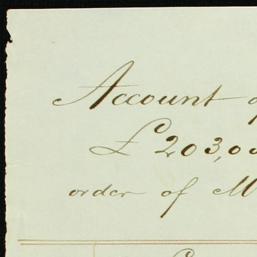 Account o
£203,00
order of M